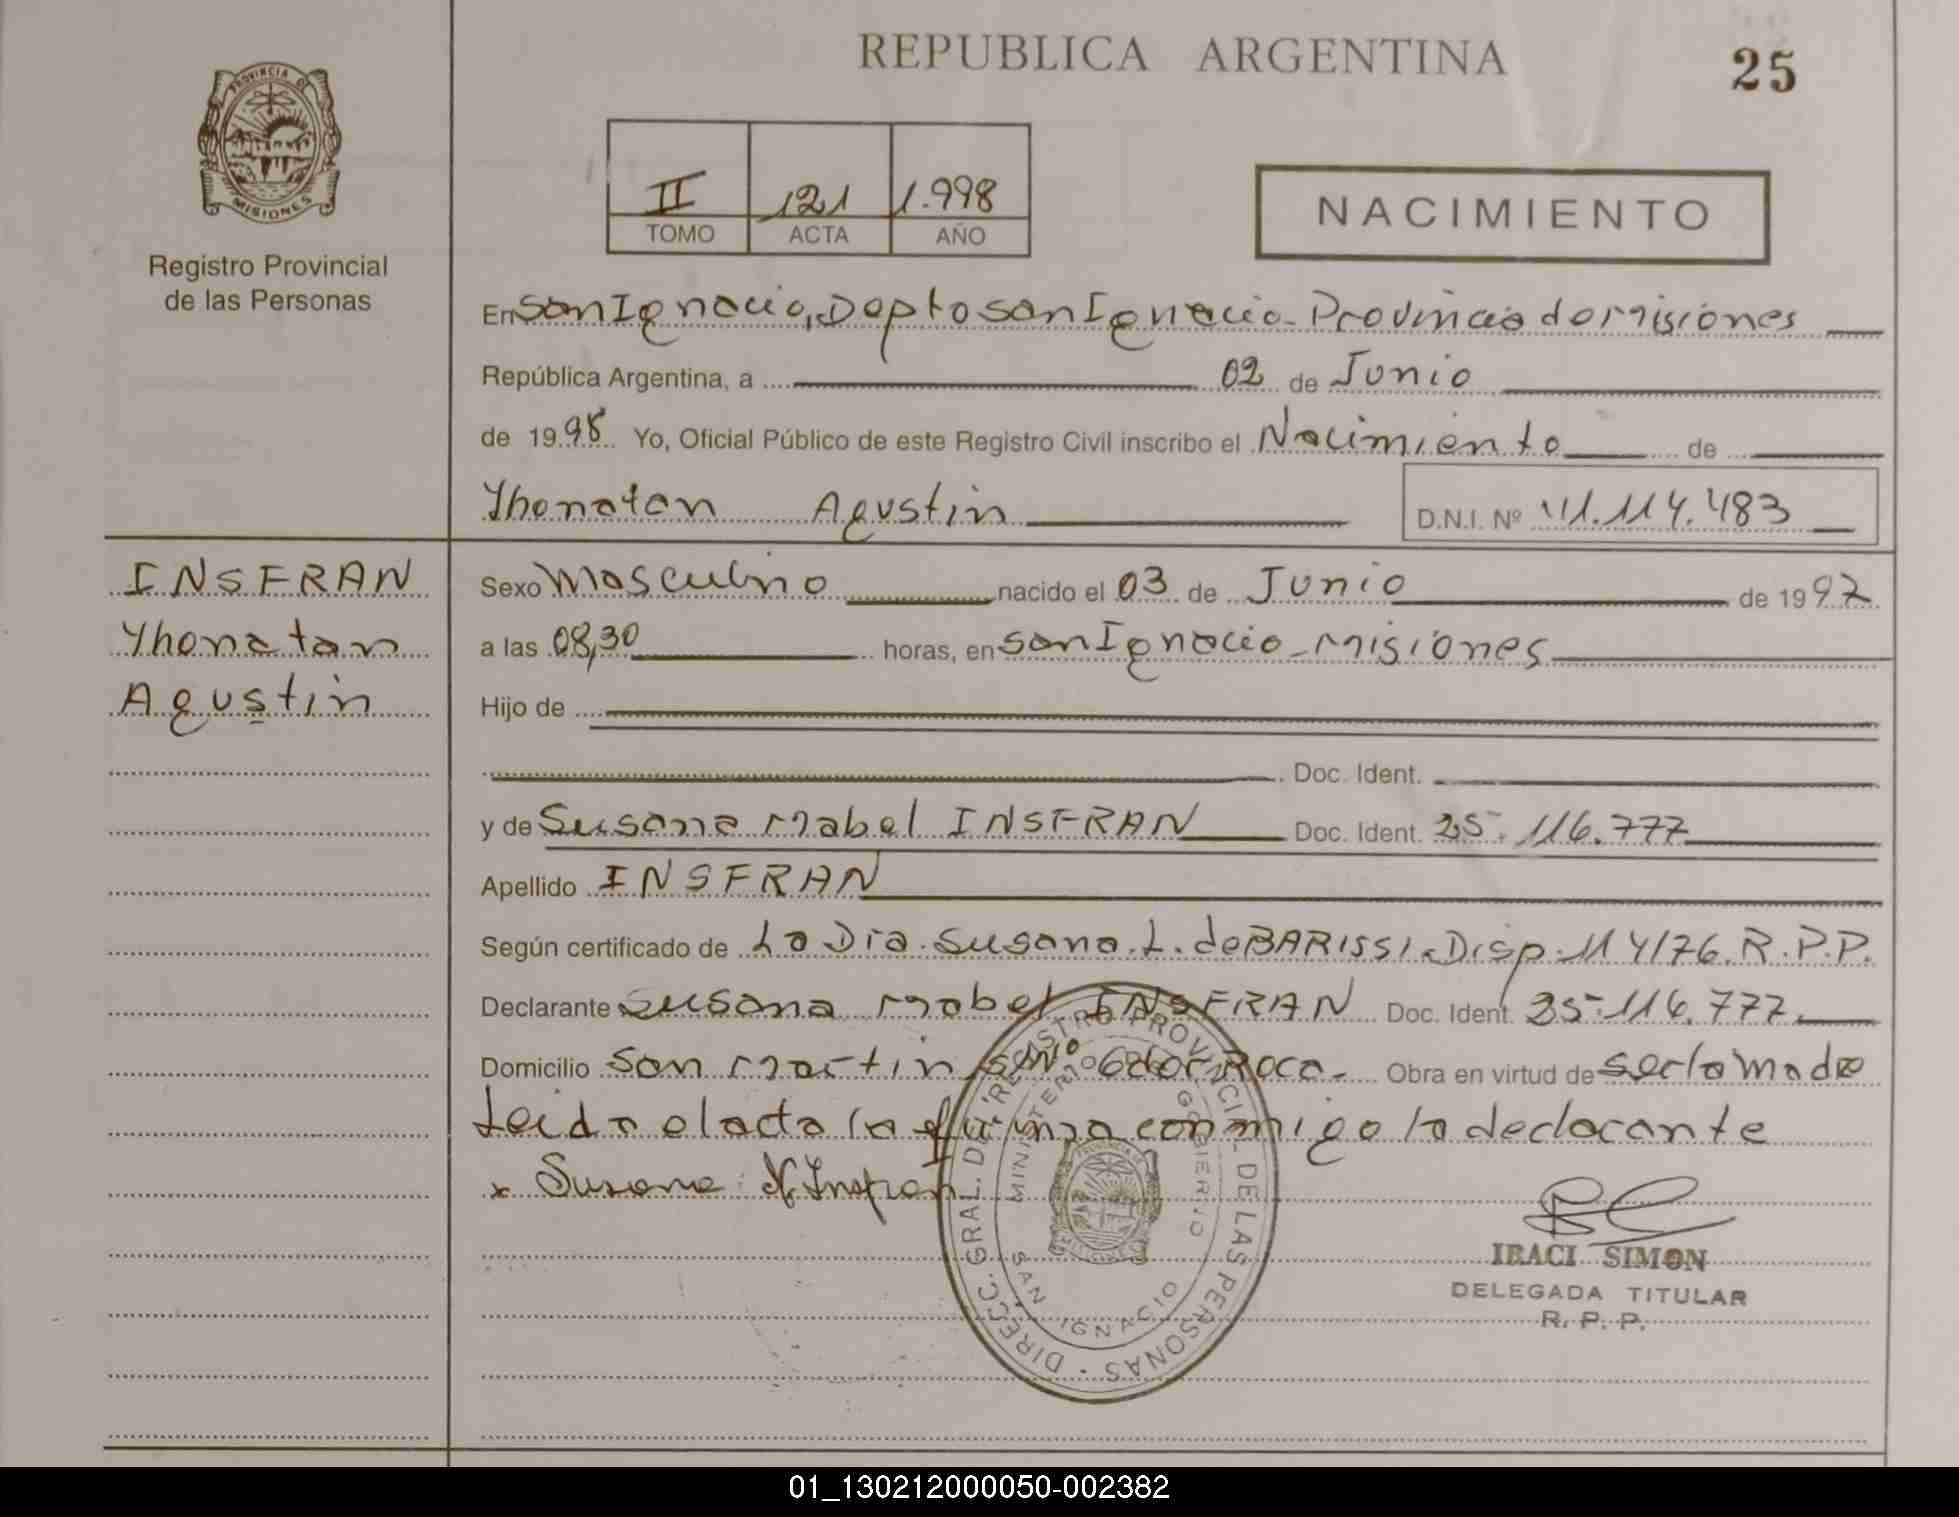 REPUBLICA ARGENTINA
25
PROVINCIA DE
MISIONES
Registro Provincial
de las Personas
II 121 1.998
TOMO ACTA AÑO
NACIMIENTO
En San Ignacio, Depto San Ignacio - Provincia de Misiones
República Argentina, a 02 de Junio
de 1998 Yo, Oficial Público de este Registro Civil inscribo el Nacimiento de
Yhonatan Agustin D.N.I. Nº 41.114.483
INSFRAN
Yhonatan
Agustin
Sexo Masculino nacido el 03 de Junio de 1997
a las 08,30 horas, en San Ignacio - Misiones
Hijo de
Doc. Ident.
y de Susana Mabel INSFRAN Doc. Ident. 25.116.777
Apellido INSFRAN
Según certificado de La Dra. Susana. L. de BARISSI. Disp. 114/76. R.P.P.
Declarante Susana Mabel INSFRAN Doc. Ident. 25.116.777.
Domicilio San Martin s/Nº Gdor Roca. Obra en virtud de ser la madre
Leida el acta la firma conmigo la declarante
x Susana M Insfran
DIRECC. GRAL. DEL REGISTRO PROVINCIAL DE LAS PERSONAS
MINISTERIO GOBIERNO
SAN IGNACIO
IRACI SIMON
DELEGADA TITULAR
R. P. P.
01_130212000050-002382